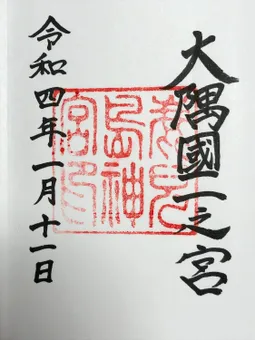 大隅國一之宮
鹿兒
島神
宮印
令和四年一月十一日